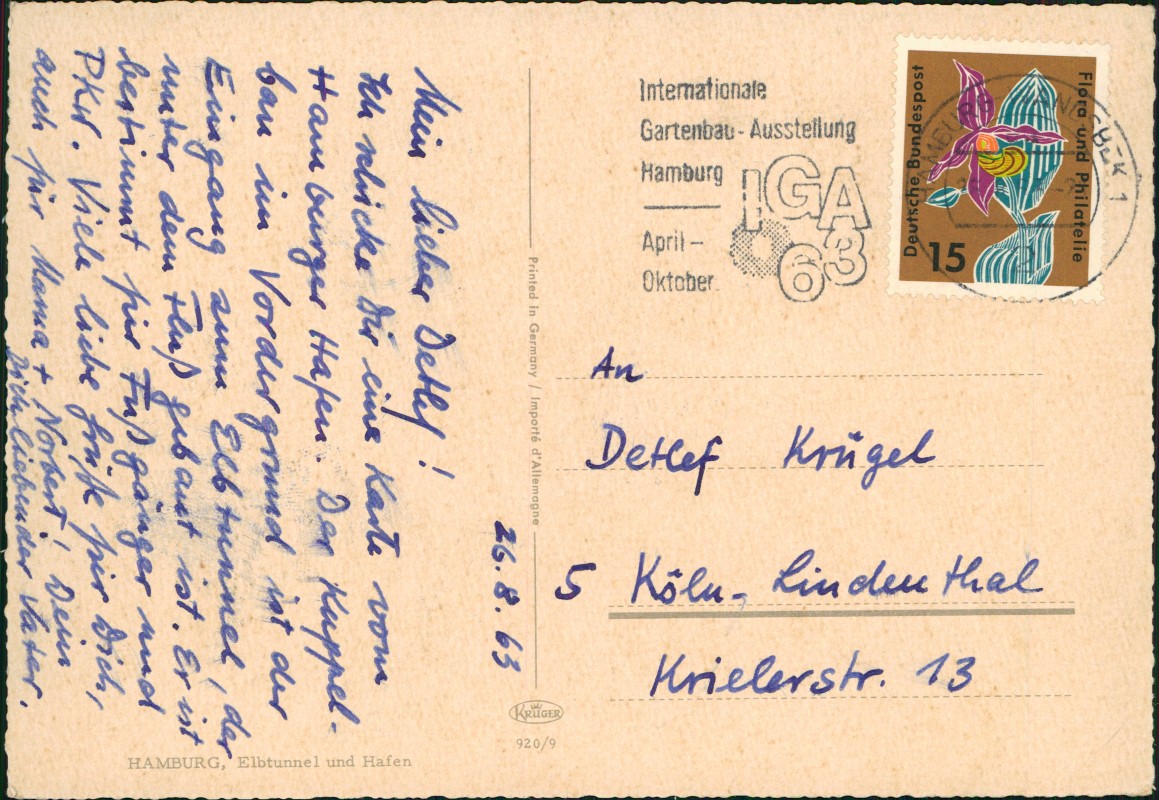 Mein lieber Detlef!
Ich schicke Dir eine Karte vom
Hamburger Hafen. Der Kuppel-
bau im Vordergrund ist der
Eingang zum Elbtunnel, der
unter dem Fluß gebaut ist. Er ist
bestimmt für Fußgänger und
PKW. Viele liebe Grüße für Dich,
auch für Mama + Norbert! Dein
Dich liebender Vater.
26.8.63
HAMBURG, Elbtunnel und Hafen
Printed in Germany / Importé d'Allemagne
KRÜGER
920/9
Internationale
Gartenbau-Ausstellung
Hamburg
April –
Oktober
IGA
63
Deutsche Bundespost
Flora und Philatelie
15
HAMBURG WANDSBEK 1
An
Detlef Krügel
5 Köln-Lindenthal
Krielerstr. 13